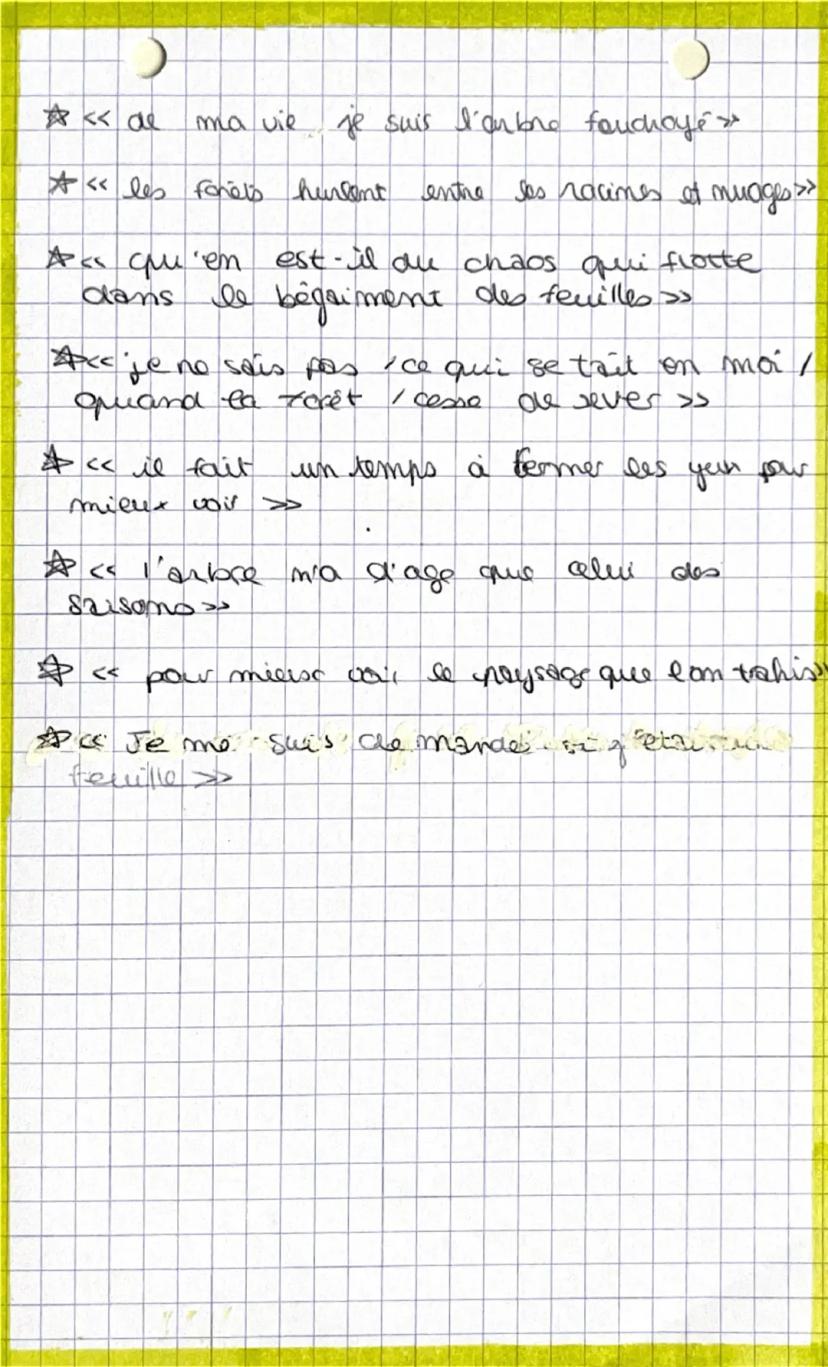 ☆ << de ma vie je suis l'arbre foudroyé >>
☆ << les forêts hurlent entre les racines et nuages >>
☆ << qu'en est-il du chaos qui flotte
dans le bégaiment des feuilles >>
☆ << je ne sais pas / ce qui se tait en moi /
quand la forêt / cesse de rever >>
☆ << il fait un temps à fermer les yeux pour
mieux voir >>
☆ << l'arbre n'a d'age que celui des
saisons >>
☆ << pour mieux voir le paysage que l'on trahis >>
☆ << Je me suis demandé si j'étais une
feuille >>